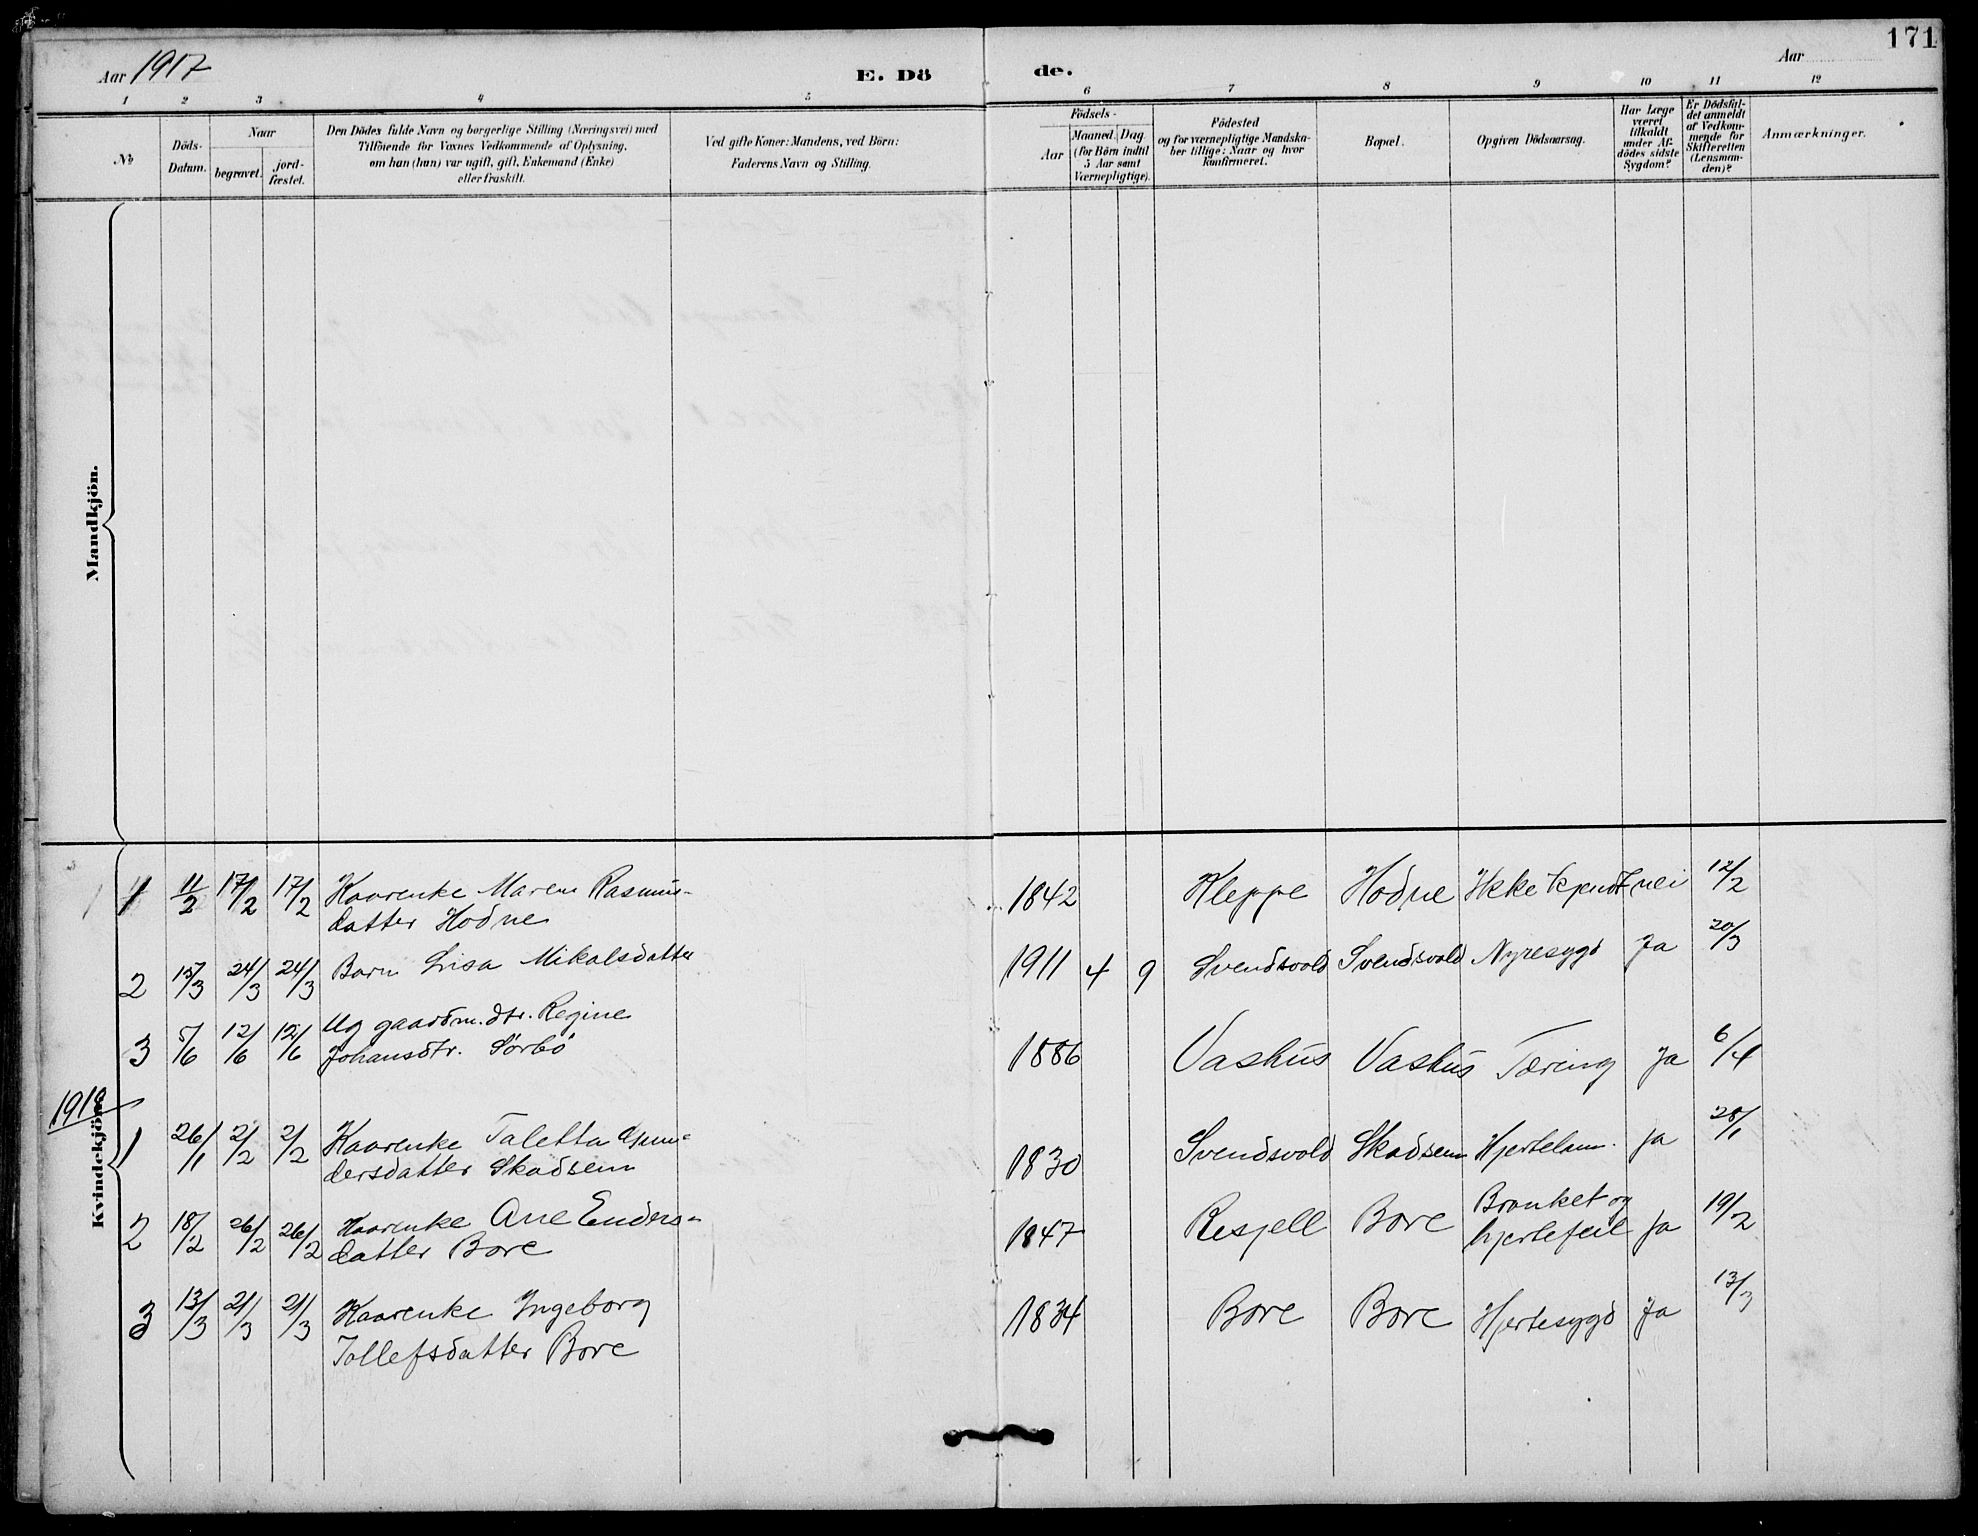 171
Aar 1917
E. Dö
de.
Aar
1 2 3 4 5 6 7 8 9 10 11 12
No
Döds-
Datum.
Naar
begravet.
jord-
fæstet.
Den Dödes fulde Navn og borgerlige Stilling (Næringsvei) med
Tilföiende for Voxnes Vedkommende af Oplysning,
om han (hun) var ugift, gift, Enkemand (Enke)
eller fraskilt.
Ved gifte Koner: Mandens, ved Börn:
Faderens Navn og Stilling.
Födsels-
Aar
Maaned. Dag.
(for Börn indtil
5 Aar samt
Værnepligtige).
Födested
og for værnepligtige Mandska-
ber tillige: Naar og hvor
konfirmeret.
Bopæl.
Opgiven Dödsaarsag.
Har Læge
været
tilkaldt
under Af-
dödes sidste
Sygdom?
Er Dödsfal-
det anmeldt
af Vedkom-
mende for
Skifteretten
(Lensman-
den)?
Anmærkninger.
Mandkjön.
Kvindekjön.
1 11/2 17/2 17/2 Kaarenke Maren Rasmus-
datter Hodne
1842 Kleppe Hodne Ikke kjendt nei 12/2
2 15/3 24/3 24/3 Barn Lisa Mikalsdatter
1911 4 9 Svendsvold Svendsvold Nyresygd Ja 20/3
3 5/6 12/6 12/6 Ug gaardm. dtr. Regine
Johansdtr. Sörbö
1886 Vashus Vashus Tæring Ja 6/4
1918
1 26/1 2/2 2/2 Kaarenke Taletta
dersdatter Skadsem
1830 Svendsvold Skadsem Hjertelam. Ja 28/1
2 18/2 26/2 26/2 Kaarenke Ane Enders-
datter Bore
1847 Resjell Bore Bronket og
hjertefeil Ja 19/2
3 13/3 21/3 21/3 Kaarenke Ingeborg
Tollefsdatter Bore
1834 Bore Bore Hjertesygd Ja 13/3